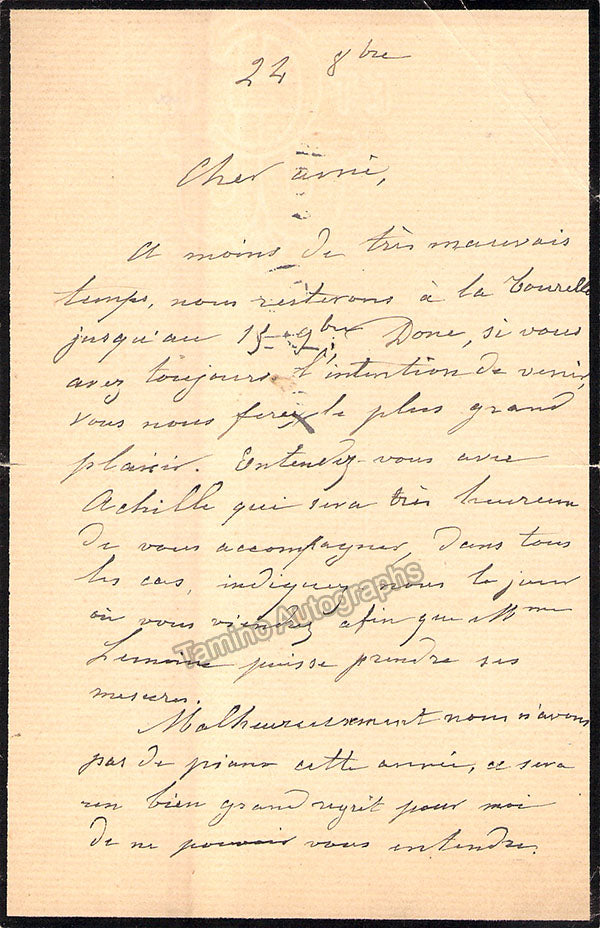 24 8bre
Cher ami,
A moins de très mauvais
temps, nous resterons à la Tourelle
jusqu'au 15 9bre. Donc, si vous
avez toujours l'intention de venir,
vous nous ferez le plus grand
plaisir. Entendez-vous avec
Achille qui sera très heureux
de vous accompagner, dans tous
les cas, indiquez nous le jour
où vous viendrez afin que Mme
Lemoine puisse prendre ses
mesures.
Malheureusement nous n'avons
pas de piano cette année, ce sera
un bien grand regret pour moi
de ne pouvoir vous entendre.
Tamino Autographs